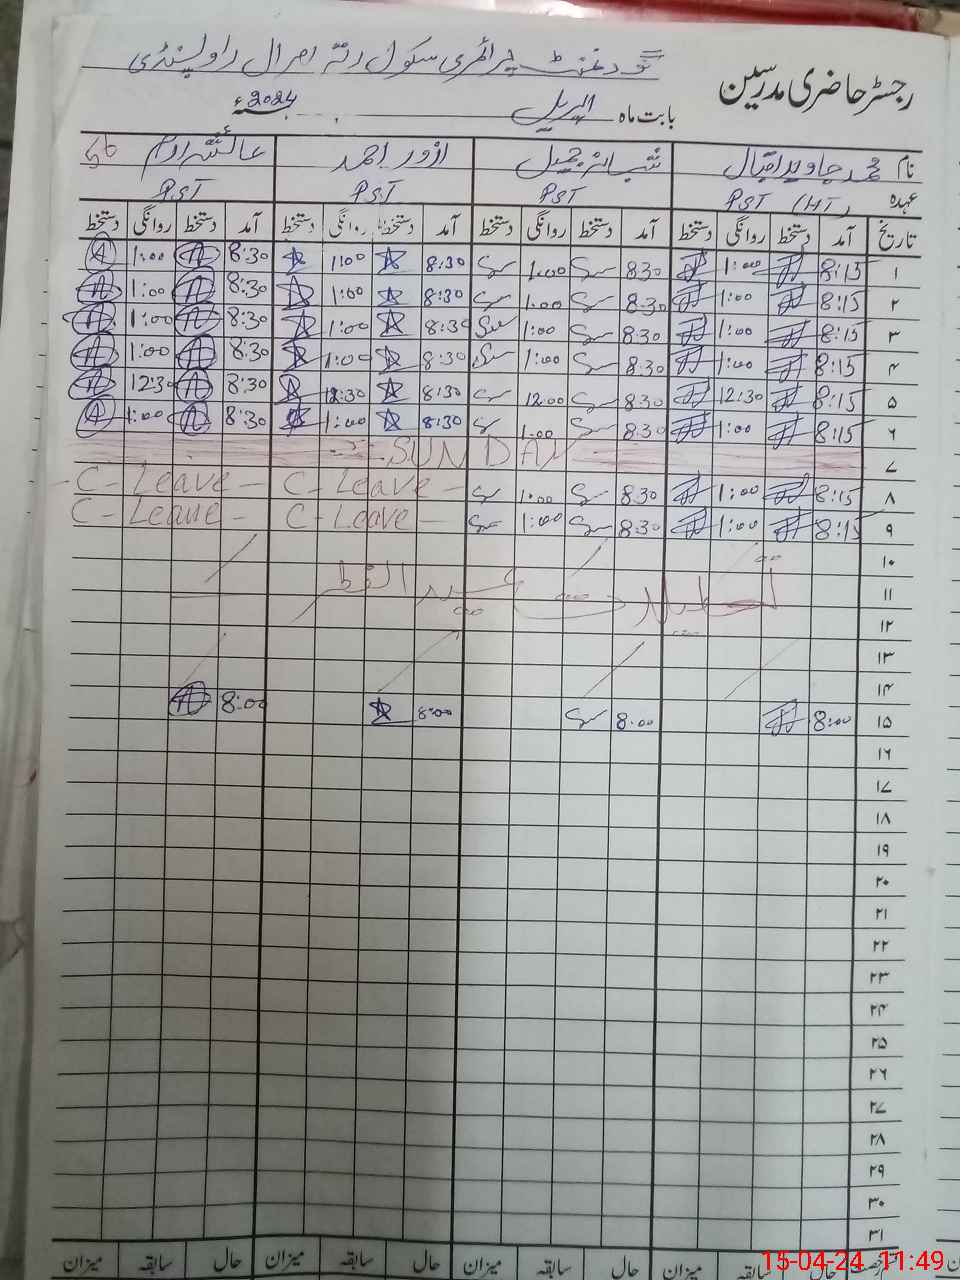 گورنمنٹ پرائمری سکول رتہ امرال راولپنڈی
رجسٹر حاضری مدرسین
بابت ماہ اپریل 2024ء
نام محمد جاوید اقبال شبانہ جمیل انور احمد عائشہ ارم
عہدہ PST (HT) PST PST PST
تاریخ آمد دستخط روانگی دستخط آمد دستخط روانگی دستخط آمد دستخط روانگی دستخط آمد دستخط روانگی دستخط
۱ 8:15 1:00 8:30 1:00 8:30 1:00 8:30 1:00
۲ 8:15 1:00 8:30 1:00 8:30 1:00 8:30 1:00
۳ 8:15 1:00 8:30 1:00 8:30 1:00 8:30 1:00
۴ 8:15 1:00 8:30 1:00 8:30 1:00 8:30 1:00
۵ 8:15 12:30 8:30 12:00 8:30 12:30 8:30 12:30
۶ 8:15 1:00 8:30 1:00 8:30 1:00 8:30 1:00
۷ SUNDAY
۸ 8:15 1:00 8:30 1:00 C-Leave - C-Leave -
۹ 8:15 1:00 8:30 1:00 C-Leave - C-Leave -
۱۰
۱۱ تعطیلات عید الفطر
۱۲
۱۳
۱۴
۱۵ 8:00 8:00 8:00 8:00
۱۶
۱۷
۱۸
۱۹
۲۰
۲۱
۲۲
۲۳
۲۴
۲۵
۲۶
۲۷
۲۸
۲۹
۳۰
۳۱
حال سابقہ میزان حال سابقہ میزان حال سابقہ میزان
15-04-24 11:49